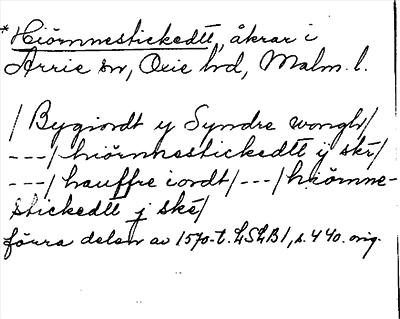 *Hiörnnestickedtt, åkrar i
Arrie sn, Oxie hd, Malm. l.
/ Bygiordt y Syndre wongh/
---/ hiörnnestickedtt ÿ skē/
---/ hauffre iordt/ ---/ hiörnne-
stickedtt j skē/
förra delen av 1570-t. LSLB1, s. 440. orig.